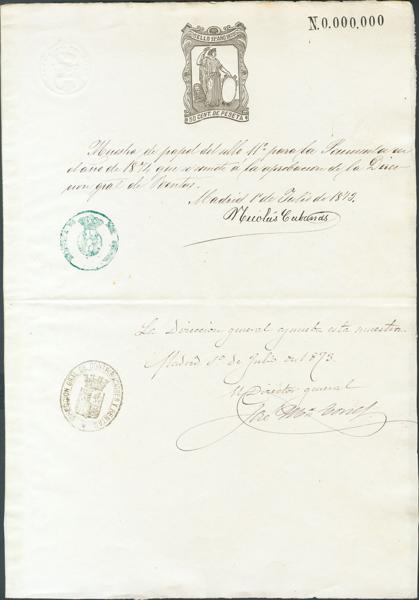 N.0.000,000
SELLO 11º AÑO 1874
50 CENT. DE PESETA
Muestra de papel del sello 11º para la Península en
el año de 1874, que se remite á la aprobacion de la Direc
cion gral de Rentas.
Madrid 1º de Julio de 1873.
Nicolás Cabañas
La Direccion general aprueba esta muestra.
Madrid 1º de Julio de 1873.
El Director general
José Mª
DIRECCION GRAL DE CONTRIBUCIONES Y RENTAS